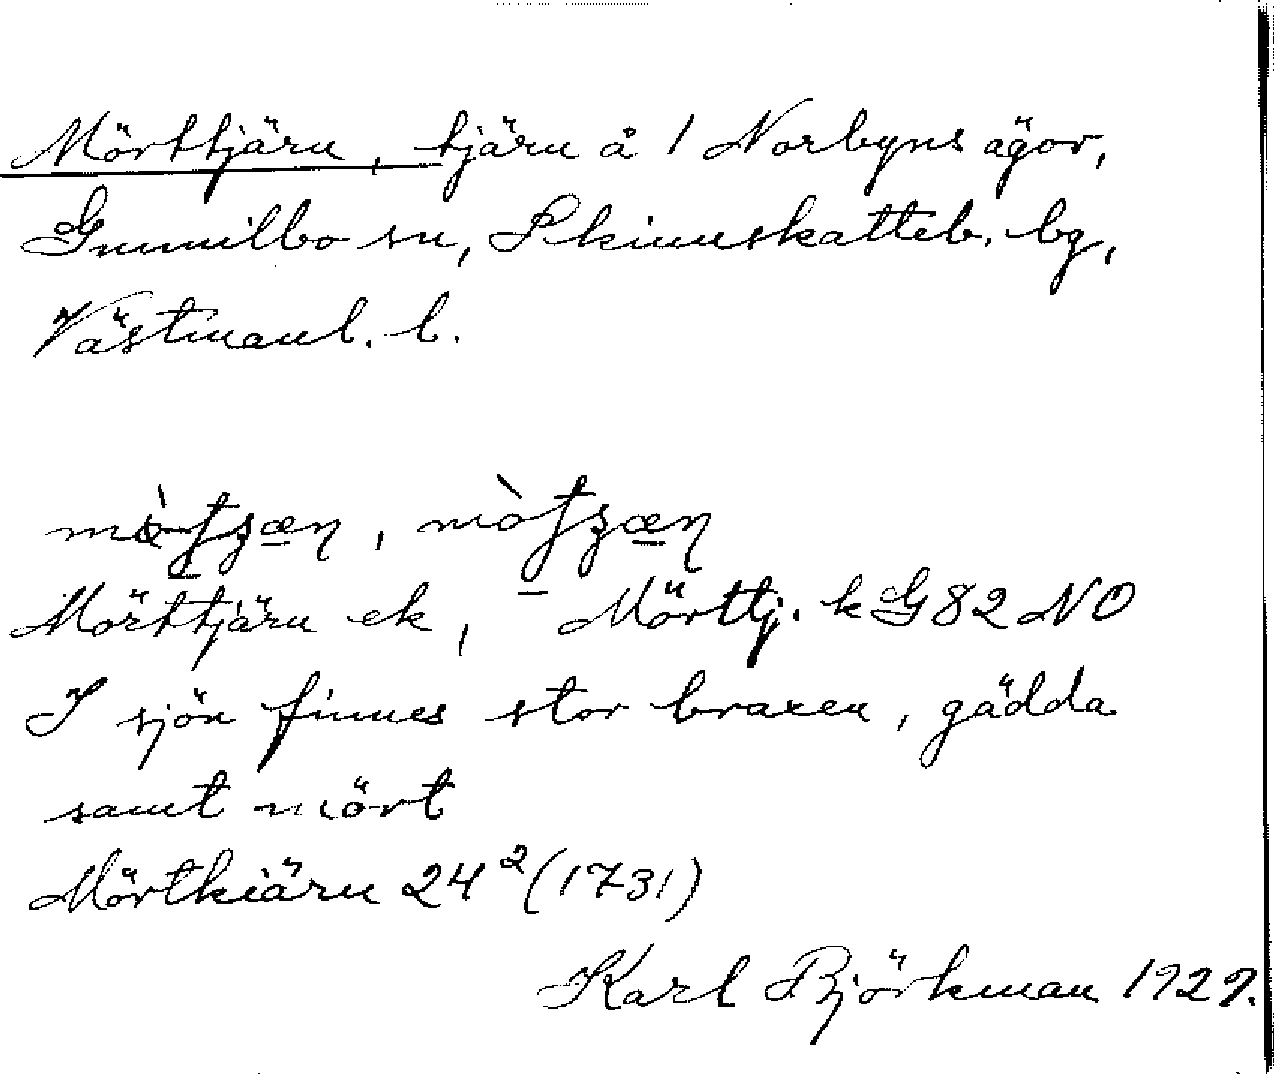 Mörttjärn, tjärn å 1 Norbyns ägor,
Gunnilbo sn, Skinnskatteb. bg,
Västmanl. l.
Mörttjärn ek, Mörttj. kG82 NO
I sjön finnes stor braxen, gädda
samt mört
Mörtkiärn 24² (1731)
Karl Björkman 1929.